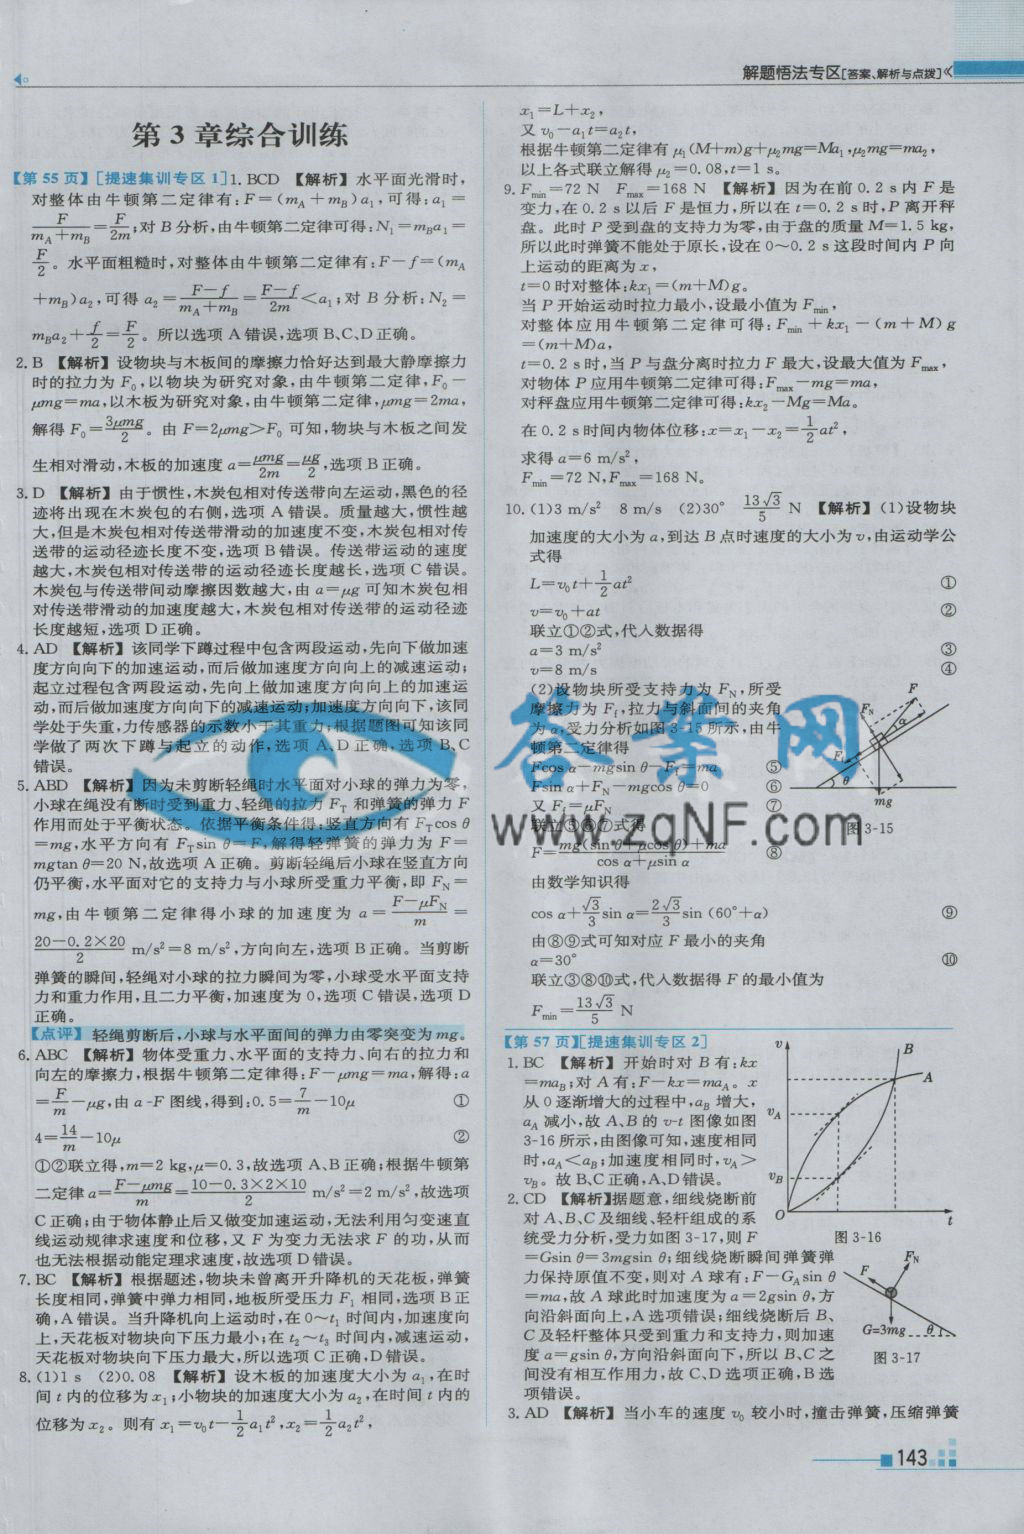 解题悟法专区[答案、解析与点拨]《
第3章综合训练
【第55页】[提速集训专区1]1. BCD 【解析】水平面光滑时,
对整体由牛顿第二定律有:F=(mA+mB)a₁,可得:a₁=
F/(mA+mB)=F/2m;对B分析,由牛顿第二定律可得:N₁=mBa₁=
F/2。水平面粗糙时,对整体由牛顿第二定律有:F-f=(mA
+mB)a₂,可得a₂=(F-f)/(mA+mB)=(F-f)/2m<a₁;对B分析:N₂=
mBa₂+f/2=F/2。所以选项A错误,选项B、C、D正确。
2. B 【解析】设物块与木板间的摩擦力恰好达到最大静摩擦力
时的拉力为F₀,以物块为研究对象,由牛顿第二定律,F₀-
μmg=ma,以木板为研究对象,由牛顿第二定律,μmg=2ma,
解得F₀=3μmg/2。由F=2μmg>F₀可知,物块与木板之间发
生相对滑动,木板的加速度a=μmg/2m=μg/2,选项B正确。
3. D 【解析】由于惯性,木炭包相对传送带向左运动,黑色的径
迹将出现在木炭包的右侧,选项A错误。质量越大,惯性越
大,但是木炭包相对传送带滑动的加速度不变,木炭包相对传
送带的运动径迹长度不变,选项B错误。传送带运动的速度
越大,木炭包相对传送带的运动径迹长度越长,选项C错误。
木炭包与传送带间动摩擦因数越大,由a=μg可知木炭包相
对传送带滑动的加速度越大,木炭包相对传送带的运动径迹
长度越短,选项D正确。
4. AD 【解析】该同学下蹲过程中包含两段运动,先向下做加速
度方向向下的加速运动,而后做加速度方向向上的减速运动;
起立过程包含两段运动,先向上做加速度方向向上的加速运
动,而后做加速度方向向下的减速运动;加速度方向向下,该同
学处于失重,力传感器的示数小于其重力;根据题图可知该同
学做了两次下蹲与起立的动作,选项A、D正确,选项B、C
错误。
5. ABD 【解析】因为未剪断轻绳时水平面对小球的弹力为零,
小球在绳没有断时受到重力、轻绳的拉力FT和弹簧的弹力F
作用而处于平衡状态。依据平衡条件得:竖直方向有FTcos θ
=mg,水平方向有FTsin θ=F,解得轻弹簧的弹力为F=
mgtan θ=20 N,故选项A正确。剪断轻绳后小球在竖直方向
仍平衡,水平面对它的支持力与小球所受重力平衡,即FN=
mg,由牛顿第二定律得小球的加速度为a=(F-μFN)/m=
(20-0.2×20)/2 m/s²=8 m/s²,方向向左,选项B正确。当剪断
弹簧的瞬间,轻绳对小球的拉力瞬间为零,小球受水平面支持
力和重力作用,且二力平衡,加速度为0,选项C错误,选项D
正确。
【点评】轻绳剪断后,小球与水平面间的弹力由零突变为mg。
6. ABC 【解析】物体受重力、水平面的支持力、向右的拉力和
向左的摩擦力,根据牛顿第二定律得:F-μmg=ma,解得:a
=F/m-μg,由a-F图线,得到:0.5=7/m-10μ ①
4=14/m-10μ ②
①②联立得,m=2 kg,μ=0.3,故选项A、B正确;根据牛顿第
二定律a=(F-μmg)/m=(10-0.3×2×10)/2 m/s²=2 m/s²,故选项
C正确;由于物体静止后又做变加速运动,无法利用匀变速直
线运动规律求速度和位移,又F为变力无法求F的功,从而
也无法根据动能定理求速度,故选项D错误。
7. BC 【解析】根据题述,物块未曾离开升降机的天花板,弹簧
长度相同,弹簧中弹力相同,地板所受压力F₁相同,选项B正
确,A错误。当升降机向上运动时,在0~t₁时间内,加速度向
上,天花板对物块向下压力最小;在t₂~t₃时间内,减速运动,
天花板对物块向下压力最大,所以选项C正确,D错误。
8. (1)1 s (2)0.08 【解析】设木板的加速度大小为a₁,在时
间t内的位移为x₁;小物块的加速度大小为a₂,在时间t内的
位移为x₂。则有x₁=v₀t-½a₁t²,x₂=½a₂t²,
x₁=L+x₂,
又v₀-a₁t=a₂t,
根据牛顿第二定律有μ₁(M+m)g+μ₂mg=Ma₁,μ₂mg=ma₂,
以上各式联立解得μ₂=0.08,t=1 s。
9. Fmin=72 N Fmax=168 N 【解析】因为在前0.2 s内F是
变力,在0.2 s以后F是恒力,所以在t=0.2 s时,P离开秤
盘。此时P受到盘的支持力为零,由于盘的质量M=1.5 kg,
所以此时弹簧不能处于原长,设在0~0.2 s这段时间内P向
上运动的距离为x,
t=0时对整体:kx₁=(m+M)g。
当P开始运动时拉力最小,设最小值为Fmin,
对整体应用牛顿第二定律可得:Fmin+kx₁-(m+M)g
=(m+M)a,
t=0.2 s时,当P与盘分离时拉力F最大,设最大值为Fmax,
对物体P应用牛顿第二定律可得:Fmax-mg=ma,
对秤盘应用牛顿第二定律可得:kx₂-Mg=Ma。
在0.2 s时间内物体位移:x=x₁-x₂=½at²,
求得a=6 m/s²,
Fmin=72 N,Fmax=168 N。
10. (1)3 m/s² 8 m/s (2)30° 13√3/5 N 【解析】(1)设物块
加速度的大小为a,到达B点时速度的大小为v,由运动学公
式得
L=v₀t+½at² ①
v=v₀+at ②
联立①②式,代入数据得
a=3 m/s² ③
v=8 m/s ④
(2)设物块所受支持力为FN,所受
摩擦力为Ff,拉力与斜面间的夹角
为α,受力分析如图3-15所示,由牛
顿第二定律得
Fcos α-mgsin θ-Ff=ma ⑤
Fsin α+FN-mgcos θ=0 ⑥
又Ff=μFN ⑦
联立⑤⑥⑦式得
F=(mg(sin θ+μcos θ)+ma)/(cos α+μsin α) ⑧
由数学知识得
cos α+√3/3 sin α=2√3/3 sin (60°+α) ⑨
由⑧⑨式可知对应F最小的夹角
α=30° ⑩
联立③⑧⑩式,代入数据得F的最小值为
Fmin=13√3/5 N
F
FN
α
Ff
θ
mg
图3-15
【第57页】[提速集训专区2]
1. BC 【解析】开始时对B有:kx
=maB;对A有:F-kx=maA。x
从0逐渐增大的过程中,aB增大,
aA减小,故A、B的v-t图像如图
3-16所示,由图像可知,速度相同
时,aA<aB;加速度相同时,vA>
vB。故B、C正确,A、D错误。
v
B
A
vA
vB
O
t
图3-16
2. CD 【解析】据题意,细线烧断前
对A、B、C及细线、轻杆组成的系
统受力分析,受力如图3-17,则F
=Gsin θ=3mgsin θ;细线烧断瞬间弹簧弹
力保持原值不变,则对A球有:F-GAsin θ
=ma,故A球此时加速度为a=2gsin θ,方
向沿斜面向上,A选项错误;细线烧断后B、
C及轻杆整体只受到重力和支持力,则加速
度a=gsin θ,方向沿斜面向下,所以B、C之
间没有相互作用力,故C、D选项正确,B选
项错误。
FN
F
G=3mg
θ
图3-17
3. AD 【解析】当小车的速度v₀较小时,撞击弹簧,压缩弹簧
143
答案网
www.zqNF.com